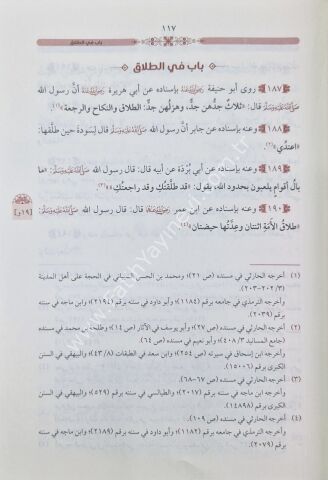 ١١٧
باب في الطلاق
باب في الطلاق
١٨٧ روى أبو حنيفة رضي الله عنه بإسناده عن أبي هريرة رضي الله عنه أنَّ رسول الله
صلى الله عليه وسلم قال: «ثلاثٌ جدُّهن جدٌّ، وهزلُهن جدٌّ: الطلاق والنكاح والرجعة»(١).
١٨٨ وعنه بإسناده عن جابر أنَّ رسول الله صلى الله عليه وسلم قال لِسَودة حين طلَّقها:
«اعتدِّي»(٢).
١٨٩ وعنه بإسناده عن أبي بُرْدَة عن أبيه قال: قال رسول الله صلى الله عليه وسلم: «ما
بالُ أقوامٍ يلعبون بحدود الله، يقول: قد طلَّقتُكِ وقد راجعتُكِ»(٣).
١٩٠ وعنه بإسناده عن ابن عمر رضي الله عنهما قال: قال رسول الله صلى الله عليه وسلم:
[١٩و]
«طلاق الأَمَةِ اثنتان وعِدَّتُها حيضتان»(٤).
(١) أخرجه الحارثي في مسنده (ص ٢١)، ومحمد بن الحسن الشيباني في الحجة على أهل المدينة
(٢٠٢/٣-٢٠٣).
وأخرجه الترمذي في جامعه برقم (١١٨٤)؛ وأبو داود في سننه برقم (٢١٩٤)؛ وابن ماجه في سننه
برقم (٢٠٣٩).
(٢) أخرجه الحارثي في مسنده (ص ٢٧)؛ وأبو يوسف في الآثار (ص ١٤)؛ وطلحة بن محمد في مسنده
(جامع المسانيد ٤٠٨/٣)؛ وأبو نعيم في مسنده (ص ٦٤).
وأخرجه ابن إسحاق في سيرته (ص ٢٥٤)؛ وابن سعد في الطبقات (٤٣/٨)؛ والبيهقي في السنن
الكبرى برقم (١٥٠٠٦).
(٣) أخرجه الحارثي في مسنده (ص ٦٧-٦٨).
وأخرجه ابن ماجه في سننه برقم (٢٠١٧)؛ والطيالسي في سننه برقم (٥٢٩)؛ والبيهقي في السنن
الكبرى برقم (١٤٨٩٨).
(٤) أخرجه الحارثي في مسنده (ص ١٠٩).
وأخرجه الترمذي في جامعه برقم (١١٨٢)؛ وأبو داود في سننه برقم (٢١٨٩)؛ وابن ماجه في سننه
برقم (٢٠٧٩).